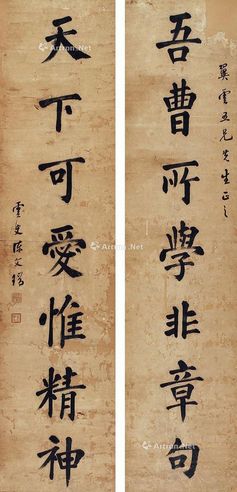 翼雲五兄先生正之
吾曹所學非章句
天下可愛惟精神
雲史陈文
Artron.Net
Artron.Net
Artron.Net
Artron.Net